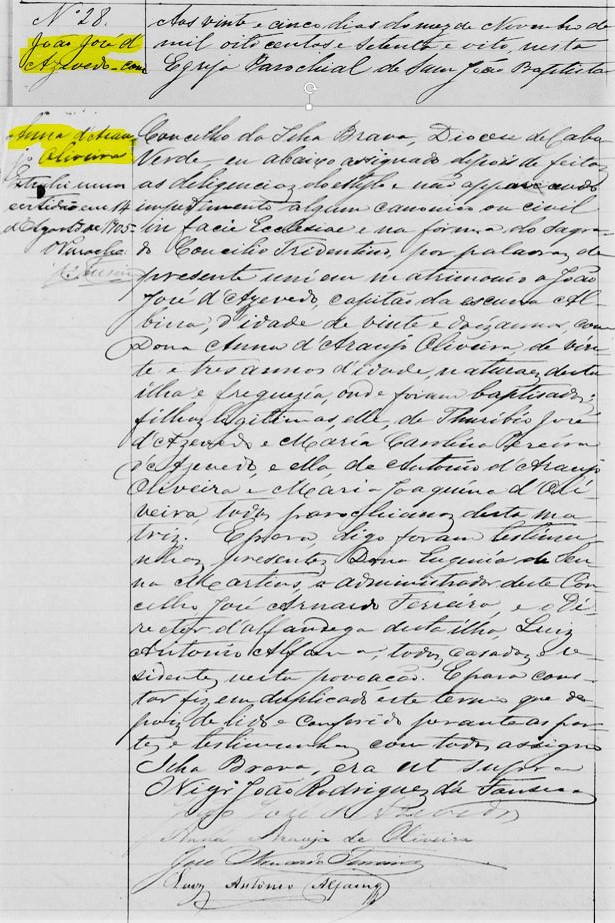 Nº 28.
João José d'
Azevedo com
Aos vinte e cinco dias do mez de Novembro de
mil oitocentos e setenta e oito, nesta
Egreja Parochial de Sam João Baptista
Anna d'Arau-
jo Oliveira
Extrahi uma
certidão em 14
d'Agosto de 1905.
O Parocho
Concelho da Ilha Brava, Diocese de Cabo
Verde, eu abaixo assignado depois de feitas
as diligencias do estylo e não apparecendo
impedimento algum canonico ou civil
in facie Ecclesiae e na forma do Sagra-
do Concilio Tridentino, por palavras de
presente uni em matrimonio a João
José d'Azevedo, capitão da escuna Al
bina, d'idade de vinte e dois annos, com
Dona Anna d'Araujo Oliveira, de vin-
te e tres annos d'idade, naturaes desta
ilha e freguezia, onde foram baptisados;
filhos legitimos, elle, de Thuribio José
d'Azevedo e Maria Carolina Pereira
d'Azevedo, e ella, de Antonio d'Araujo
Oliveira e Maria Joaquina d'Oli-
veira, todos parochianos desta ma-
triz. E para, digo foram testimu-
nhas presentes Dona Eugenia de Sen-
na Martins, o administrador deste Con-
celho José Arnardo Ferreira, e o Di-
rector d'alfandega desta ilha Luiz
Antonio Alfama, todos casados e re-
sidentes nesta povoação. E para cons-
tar fiz em duplicado este termo que de-
pois de lido e conferido perante as par-
tes e testimunhas com todos assigno
Ilha Brava, era ut supra
João Rodrigues da Fonseca
João José d'Azevedo
Anna Araujo de Oliveira
José Arnardo Ferreira
Luiz Antonio Alfama